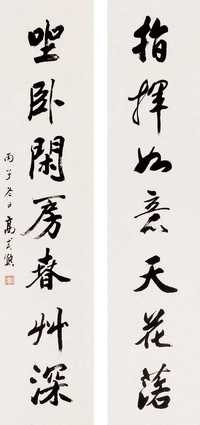 指揮如意天花落
坐臥閑房春艸深
丙子冬日高式熊